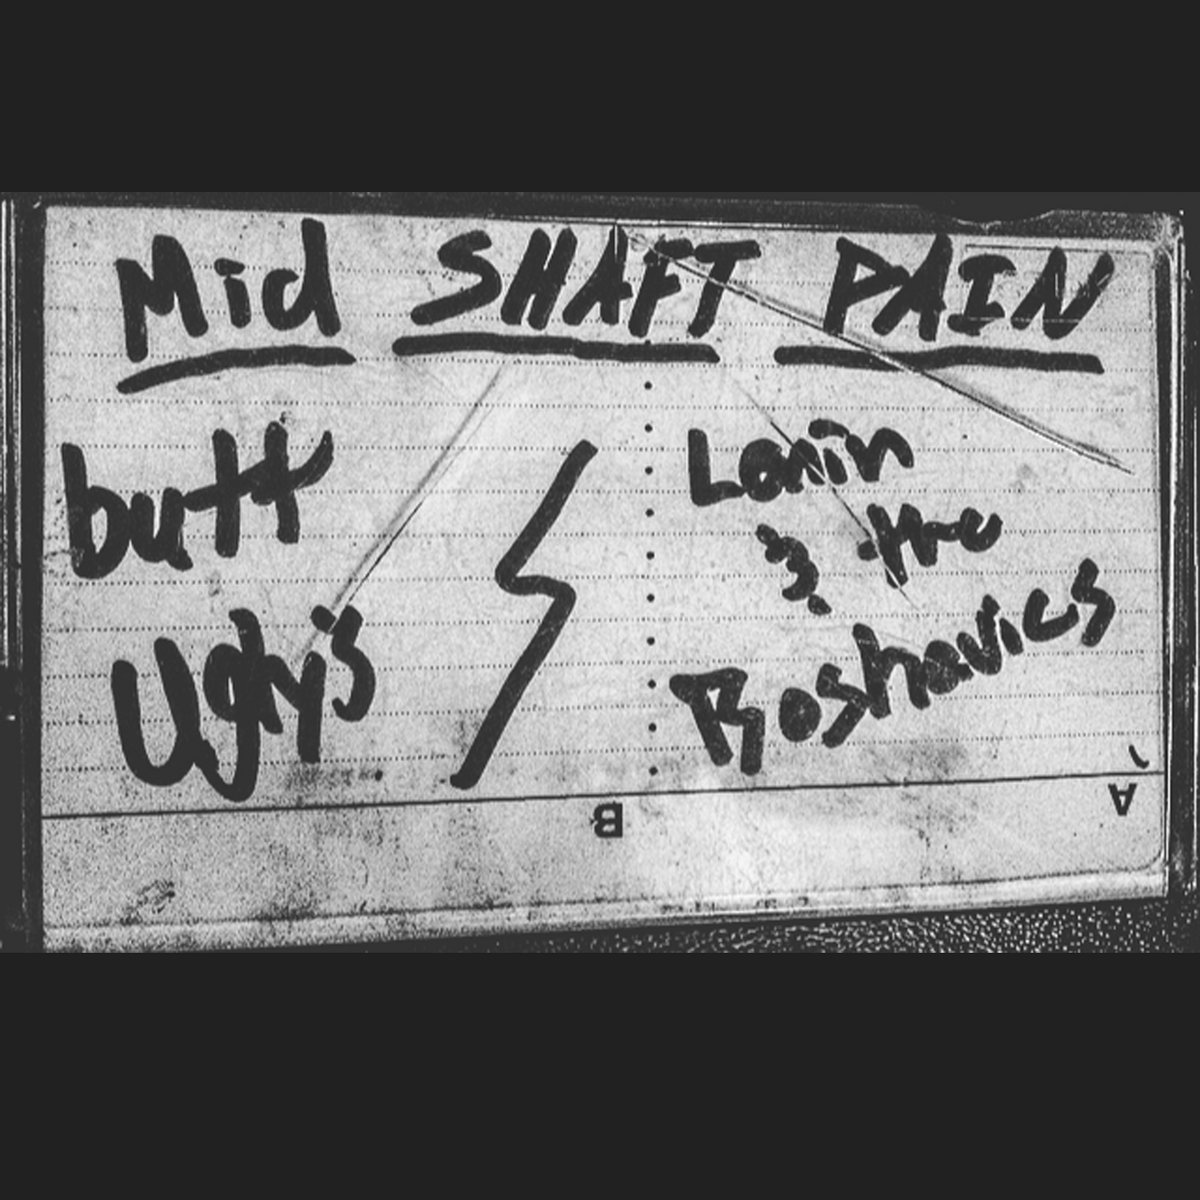 Mid SHAFT PAIN
butt
Ugly's
Lonin
& the
Boshavics
B
A